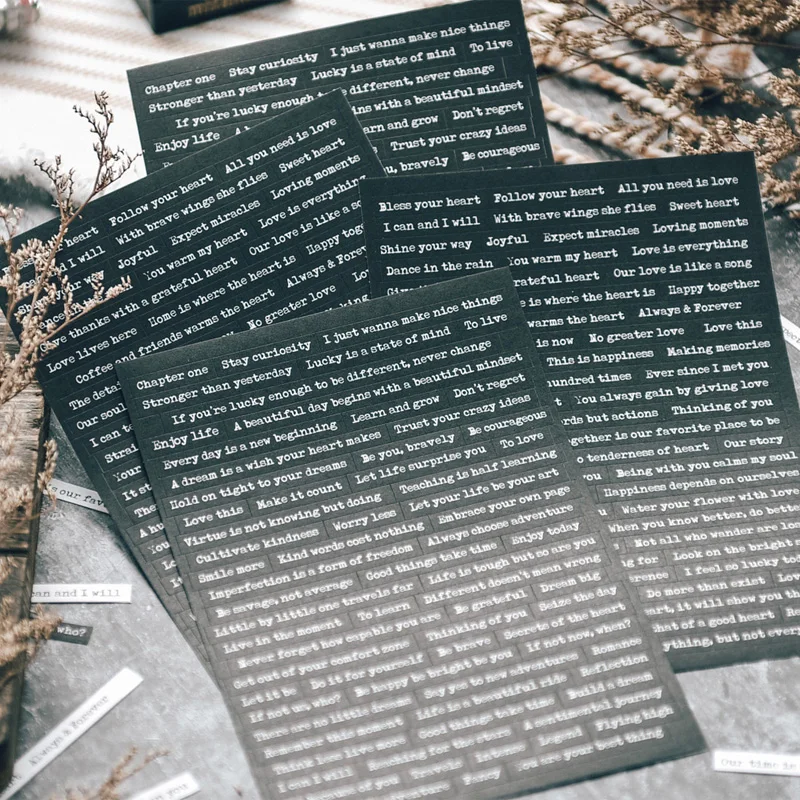 Chapter one Stay curiosity I just wanna make nice things
Stronger than yesterday Lucky is a state of mind To live
If you're lucky enough different, never change
Enjoy life ins with a beautiful mindset
arn and grow Don't regret
Trust your crazy ideas
u, bravely Be courageous
heart Follow your heart All you need is love
and I will With brave wings she flies Sweet heart
your way Joyful Expect miracles Loving moments
You warm my heart Love is everything
Give thanks with a grateful heart Our love is like a so
Love lives here Home is where the heart is Happy toge
Coffee and friends warms the heart Always & Forev
The detai No greater love Lo
Our soul Making
I can to
Strai
Your
It st
The
A hu
You
Bless your heart Follow your heart All you need is love
I can and I will With brave wings she flies Sweet heart
Shine your way Joyful Expect miracles Loving moments
Dance in the rain You warm my heart Love is everything
rateful heart Our love is like a song
e is where the heart is Happy together
warms the heart Always & Forever
is now No greater love Love this
This is happiness Making memories
hundred times Ever since I met you
You always gain by giving love
rds but actions Thinking of you
gether is our favorite place to be
o tenderness of heart Our story
you Being with you calms my soul
Happiness depends on ourselves
Water your flower with love
When you know better, do bette
Not all who wander are los
for Look on the bright s
rence I feel so lucky to
Do more than exist Lov
art, it will show you th
hat of a good heart
ything, but not every
Chapter one Stay curiosity I just wanna make nice things
Stronger than yesterday Lucky is a state of mind To live
If you're lucky enough to be different, never change
Enjoy life A beautiful day begins with a beautiful mindset
Every day is a new beginning Learn and grow Don't regret
A dream is a wish your heart makes Trust your crazy ideas
Hold on tight to your dreams Be you, bravely Be courageous
Love this Make it count Let life surprise you To love
Virtue is not knowing but doing Teaching is half learning
Cultivate kindness Worry less Let your life be your art
Smile more Kind words cost nothing Embrace your own page
Imperfection is a form of freedom Always choose adventure
Be savage, not average Good things take time Enjoy today
Little by little one travels far Life is tough but so are you
Live in the moment To learn Different doesn't mean wrong
Never forget how capable you are Be grateful Dream big
Get out of your comfort zone Thinking of you Seize the day
Let it be Do it for yourself Be brave Secrets of the heart
If not us, who? Be happy be bright be you If not now, when?
There are no little dreams Say yes to new adventures Romance
Remember this moment Life is a beautiful ride Reflection
Think less live more Good things to my time Build a dream
I can I will Reaching for the stars A sentimental journey
Because of you Travels Intense Legend Flying high
Fancy You are your best thing
s our favo
can and I will
who?
Always & Forever
n you
Our time is